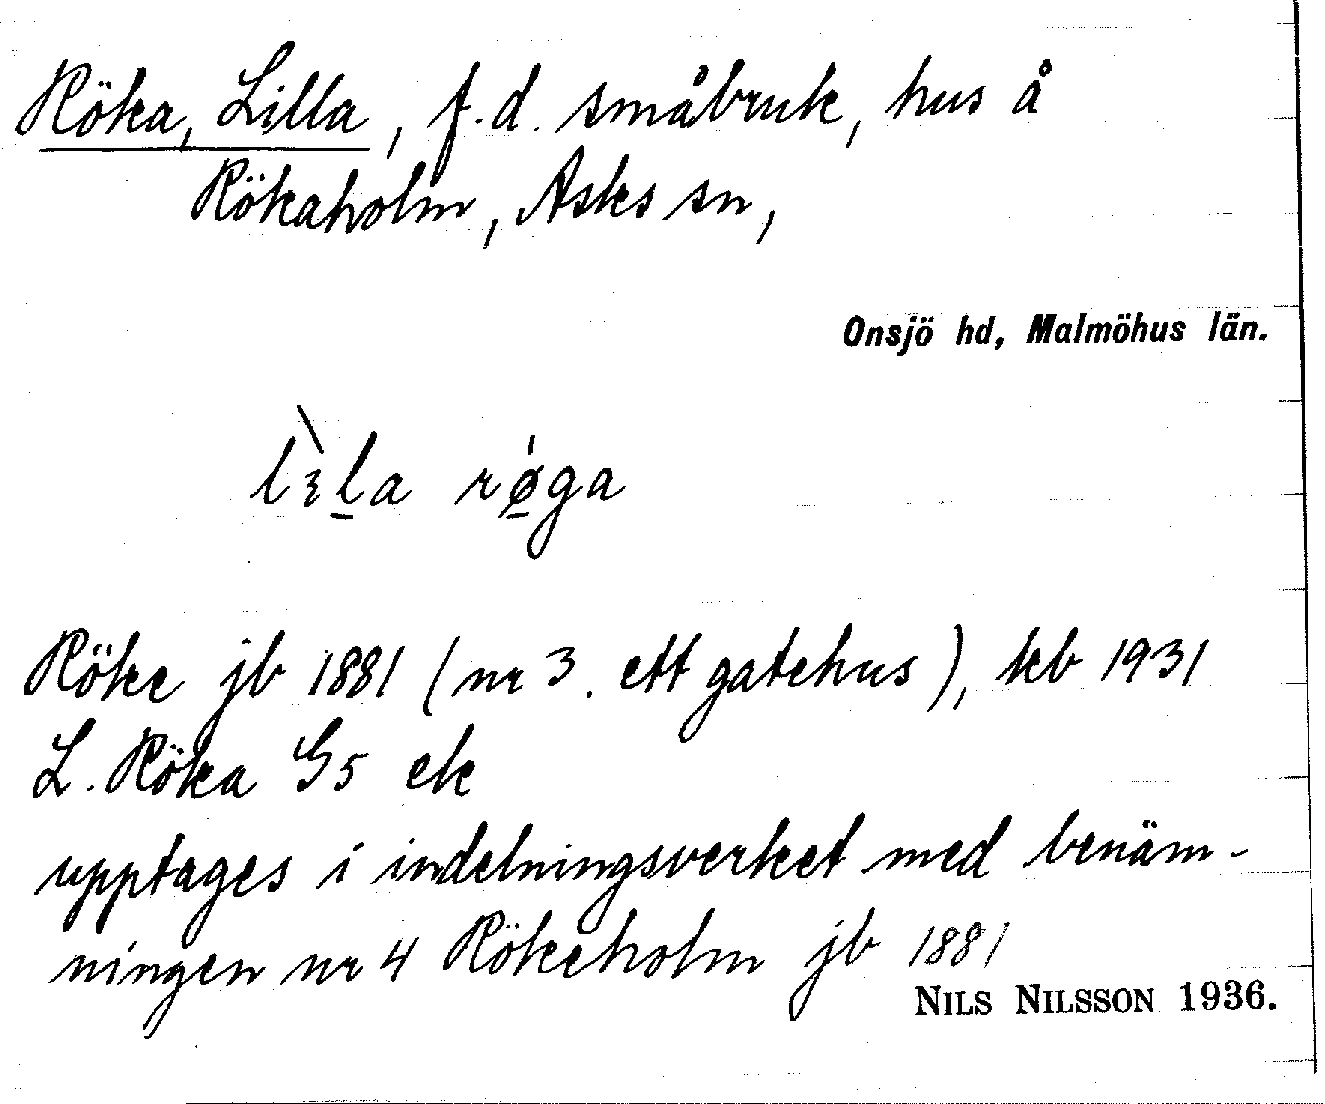 Röka, Lilla, f.d. småbruk, hus å
Rökaholm, Asks sn,
Onsjö hd, Malmöhus län.
rǿga
Röke jb 1881 (nr 3. ett gatehus), kb 1931
L. Röka G5 ek
upptages i indelningsverket med benäm-
ningen nr 4 Rökeholm jb 1881
NILS NILSSON 1936.